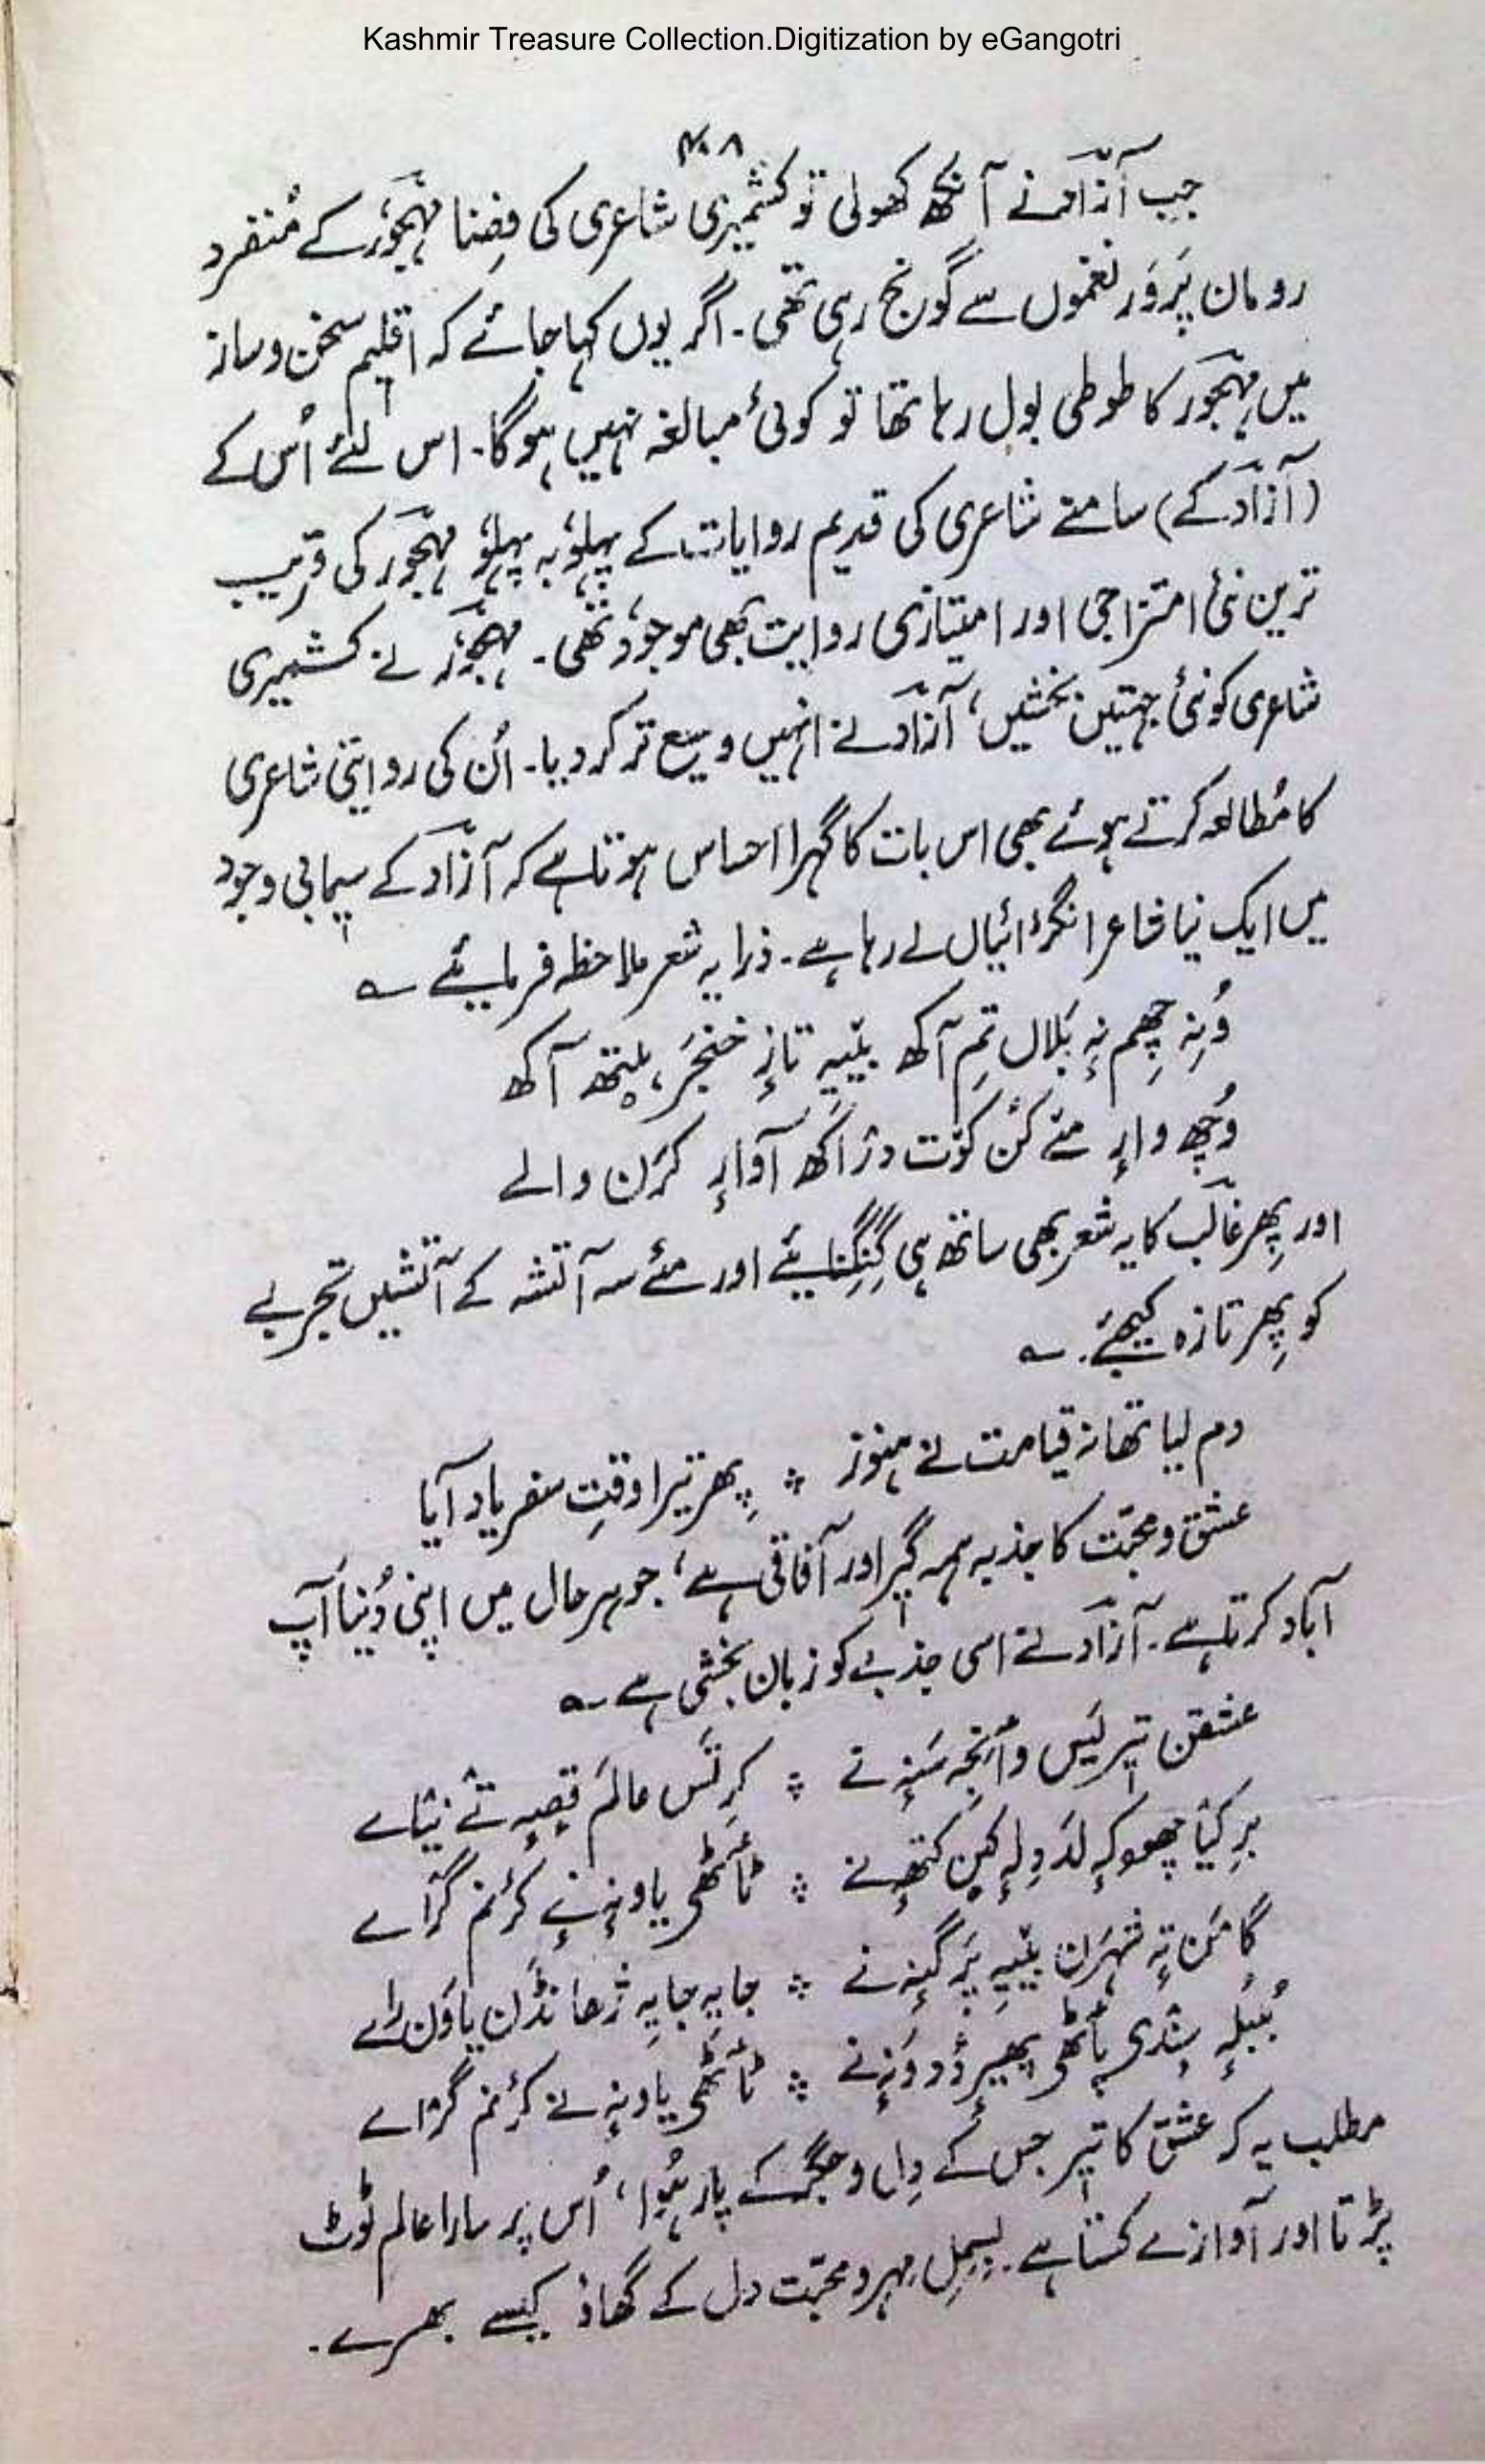 Kashmir Treasure Collection.Digitization by eGangotri
۴۰۸
جب آزادؔ نے آنکھ کھولی تو کشمیری شاعری کی فِضا مہجوؔر کے مُنفرد
رومان پَروَر نغموں سے گونج رہی تھی۔ اگر یوں کہا جائے کہ اقلیم سخن وساز
میں مہجوؔر کا طوطی بول رہا تھا تو کوئی مبالغہ نہیں ہوگا۔ اس لئے اُس کے
(آزادؔ کے) سامنے شاعری کی قدیم روایات کے پہلوُ بہ پہلوُ مہجوؔر کی قریب
ترین نئی امتزاجی اور امتیازی روایت بھی موجوُد تھی۔ مہجوؔر نے کشمیری
شاعری کو نئی جہتیں بخشیں، آزادؔ نے انہیں وسیع تر کر دیا۔ اُن کی روایتی شاعری
کا مُطالعہ کرتے ہوئے بھی اس بات کا گہرا احساس ہوتا ہے کہ آزادؔ کے سیمابی وجود
میں ایک نیا شاعر انگڑائیاں لے رہا ہے۔ ذرا یہ شعر ملاحظہ فرمائیے ؎
وُنِہ چھِم نِہ بَلان تِم آکھ بیٚیہِ تازٕ خنجَر ہیتھ آکھ
وُچھ وارٕ مےٚ کُن کوٗت دزاکھ آوارٕ کرَن والے
اور پھِر غالبؔ کا یہ شعر بھی ساتھ ہی گُنگُنایئے اور مئے سہ آتشہ کے آتشیں تجربے
کو پھِر تازہ کیجئے۔ ؎
دم لیا تھا نہ قیامت نے ہنوز ؞ پھِر تیرا وقتِ سفر یاد آیا
عشق و محبّت کا جذبہ ہمہ گیر اور آفاقی ہے، جو ہر حال میں اپنی دُنیا آپ
آباد کرتا ہے۔ آزادؔ نے اسی جذبے کو زبان بخشی ہے ؎
عشقن تیر یَس وٲنجہ سَنہِ تے ؞ کرِتَس عالَم قٕصہِ تےٚ نیٛاے
برِ کیٛا چھوکہٕ لدَ دِلہٕ کہنِ کتھہٕ نے ؞ ٹٲٹھی یاونہٕ نےٚ کرٔنم گرٛاے
گامَن تہٕ شہرَن بیٚیہِ پَرگنہٕ نے ؞ جایہِ جایہِ ژھانڈَن یاوَن راے
بُلبُلہٕ سٕندی پٲٹھی پھیرٕ وٕدوَنہٕ نے ؞ ٹٲٹھی یاونہٕ نے کرٔنم گرٛاے
مطلب یہ کہ عشق کا تیر جس کے دِل و جگر کے پار ہُوا، اُس پر سارا عالم ٹوٹ
پڑتا اور آوازے کستا ہے۔ بسمِلِ مہر و محبّت دل کے گھاؤ کیسے بھرے۔